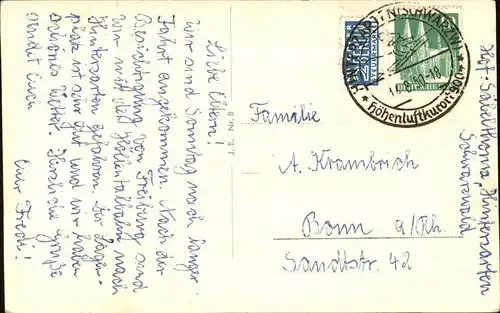 Liebe Eltern!
Wir sind Sonntag nach langer
Fahrt angekommen. Nach der
Besichtigung von Freiburg sind
wir mit der Höllentalbahn nach
Hinterzarten gefahren. Der Lager-
platz ist sehr gut und wir haben
schönes Wetter. Herzliche Grüße
sendet Euch
Euer Fredi!
J. B. Nr. 8
NOTOPFER
2 BERLIN
STEUERMARKE
HINTERZARTEN (SCHWARZW)
Höhenluftkurort 900
Familie
A. Krombrich
Bonn a/Rh.
Sandtstr. 42
Hinterzarten
Schwarzwald